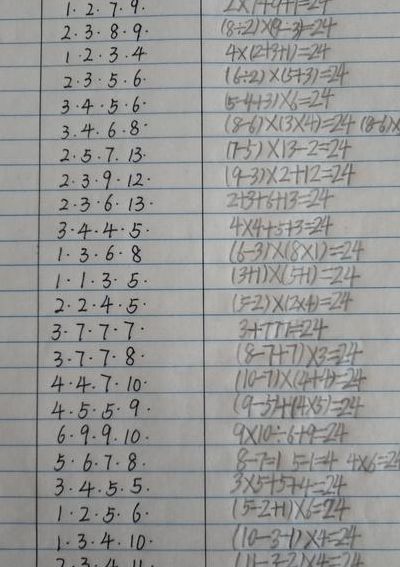 1. 2. 7. 9. 2×7+9+1=24
2. 3. 8. 9. (8÷2)×(9-3)=24
1. 2. 3. 4 4×(2+3+1)=24
2. 3. 5. 6. (6÷2)×(5+3)=24
3. 4. 5. 6. (5-4+3)×6=24
3. 4. 6. 8. (8-6)×(3×4)=24 (8-6)×
2. 5. 7. 13. (7-5)×13-2=24
2. 3. 9. 12. (9-3)×2+12=24
2. 3. 6. 13. 2+3+6+13=24
3. 4. 4. 5. 4×4+5+3=24
1. 3. 6. 8 (6-3)×(8×1)=24
1. 1. 3. 5. (3+1)×(5+1)=24
2. 2. 4. 5. (5-2)×(2×4)=24
3. 7. 7. 7. 3+7+7+7=24
3. 7. 7. 8. (8-7+7)×3=24
4. 4. 7. 10. (10-7)×(4+4)=24
4. 5. 5. 9. (9-5)+(4×5)=24
6. 9. 9. 10. 9×10÷6+9=24
5. 6. 7. 8. 8-7=1 5-1=4 4×6=24
3. 4. 5. 5. 3×5+5+4=24
1. 2. 5. 6. (5-2+1)×6=24
1. 3. 4. 10. (10-3-1)×4=24
2. 3. 4. 11. (11-3-2)×4=24